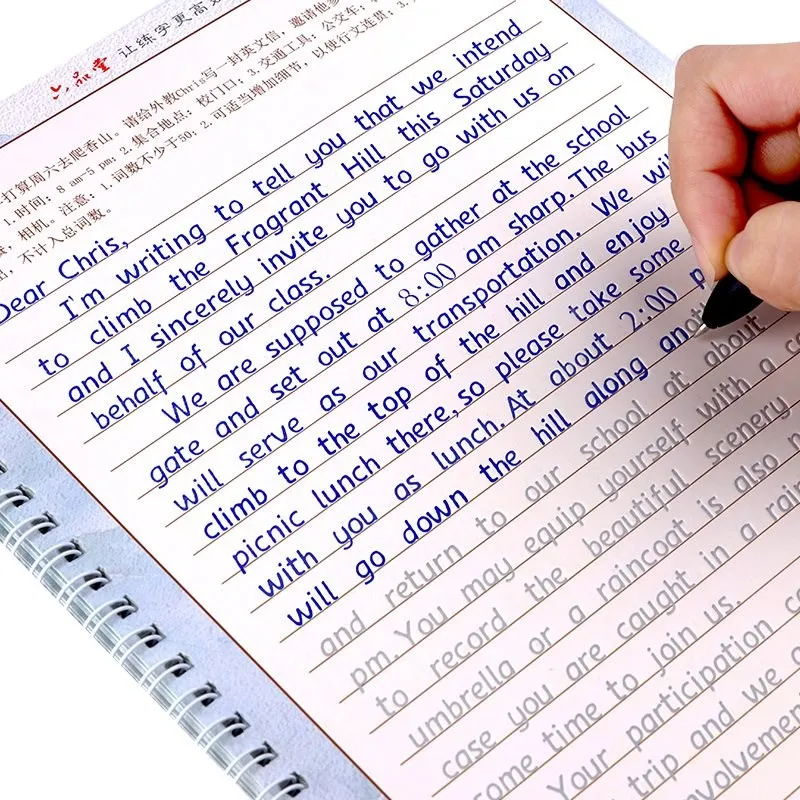 六品堂 让练字更高效
打算周六去爬香山。请给外教Chris写一封英文信，邀请他参
1.时间: 8 am-5 pm; 2.集合地点: 校门口; 3.交通工具: 公交车;
相机。注意: 1.词数不少于50; 2.可适当增加细节，以使行文连贯; 3.
不计入总词数。
Dear Chris,
I'm writing to tell you that we intend
to climb the Fragrant Hill this Saturday
and I sincerely invite you to go with us on
behalf of our class.
We are supposed to gather at the school
gate and set out at 8:00 am sharp. The bus
will serve as our transportation. We will
climb to the top of the hill and enjoy
picnic lunch there, so please take some
with you as lunch. At about 2:00 p
will go down the hill along another
and return to our school at about
pm. You may equip yourself with a ca
to record the beautiful scenery
umbrella or a raincoat is also n
case you are caught in a rain
some time to join us.
Your participation
trip and we a
involvemen